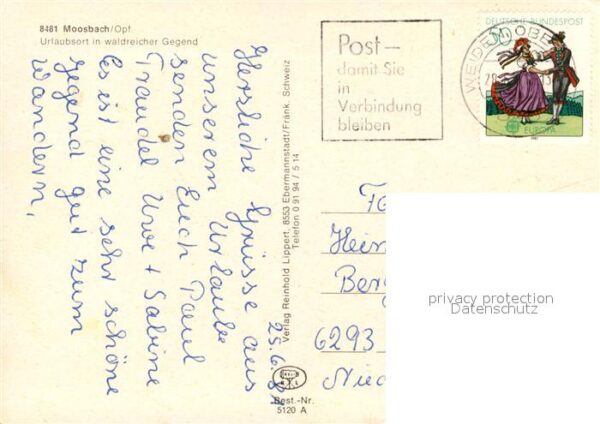 8481 Moosbach/Opf.
Urlaubsort in waldreicher Gegend
Herzliche Grüsse aus
unserem Urlaub
senden Euch Paul
Traudel Uwe + Sabine
Es ist eine sehr schöne
Gegend gut zum
Wandern,
25.6.
Verlag Reinhold Lippert, 8553 Ebermannstadt/Fränk. Schweiz
Telefon 0 91 94 / 5 14
Best.-Nr.
5120 A
Post –
damit Sie
in
Verbindung
bleiben
DEUTSCHE BUNDESPOST
EUROPA
WEIDEN OBERPF
Fa
Hein
Ber
6293
Nied
privacy protection
Datenschutz